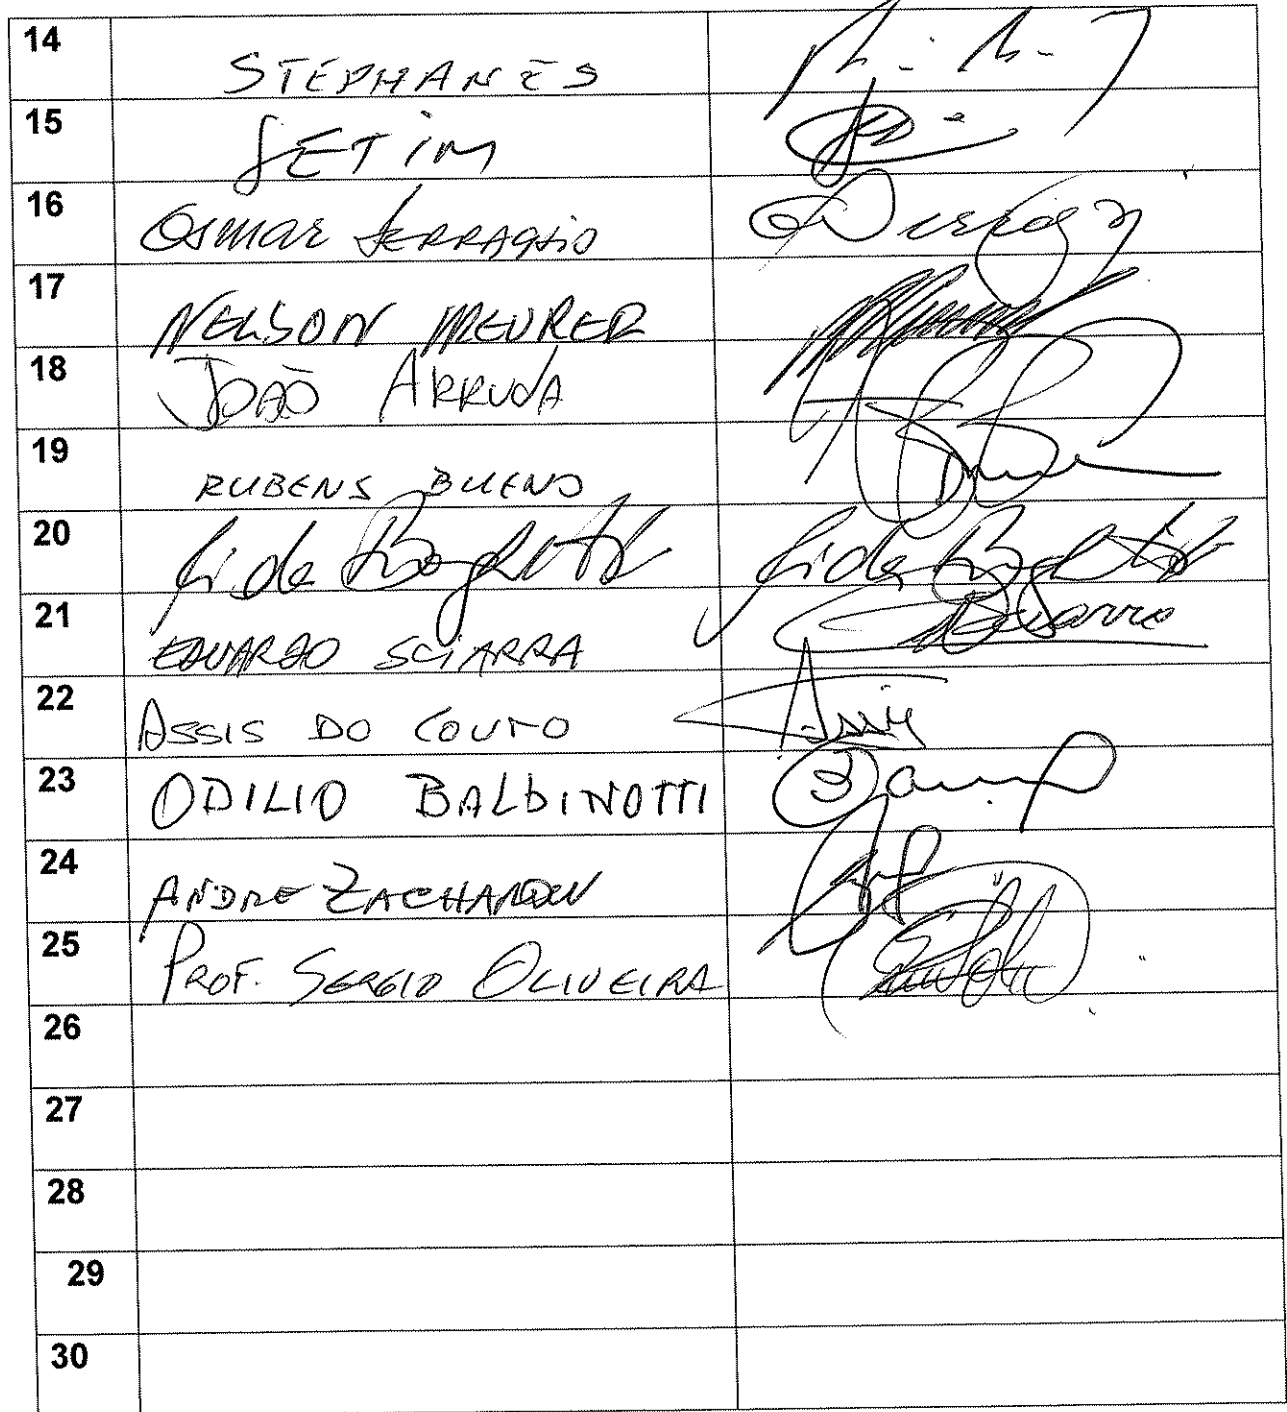 14 STEPHANES
15 SETIM
16 OSMAR SERRAGLIO
17 NELSON MEURER
18 JOÃO ARRUDA
19 RUBENS BUENO
20 Cida Borghetti Cida Borghetti
21 EDUARDO SCIARRA Sciarra
22 ASSIS DO COUTO Assis
23 ODILIO BALBINOTTI
24 ANDRE ZACHAROW
25 PROF. SERGIO OLIVEIRA
26
27
28
29
30